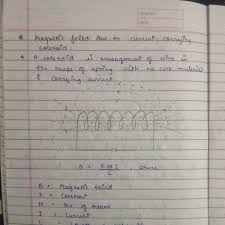 * Magnetic feild due to current carrying
solenoid
* A solenoid is arrangement of wire in
the shape of spring with no core material
& carrying current.
B = KNI / L , where
B = Magnetic feild
K = Constant
N = No of turns
I = Current